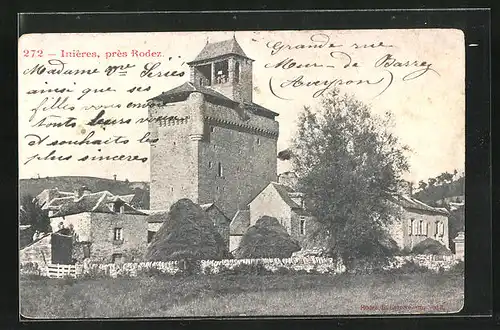 272 — Inières, près Rodez.
Madame vve Séries
ainsi que ses
filles vous en-
tous leurs
d'souhaits
plus sincères
Grande rue
Mur de Barrez
(Aveyron)